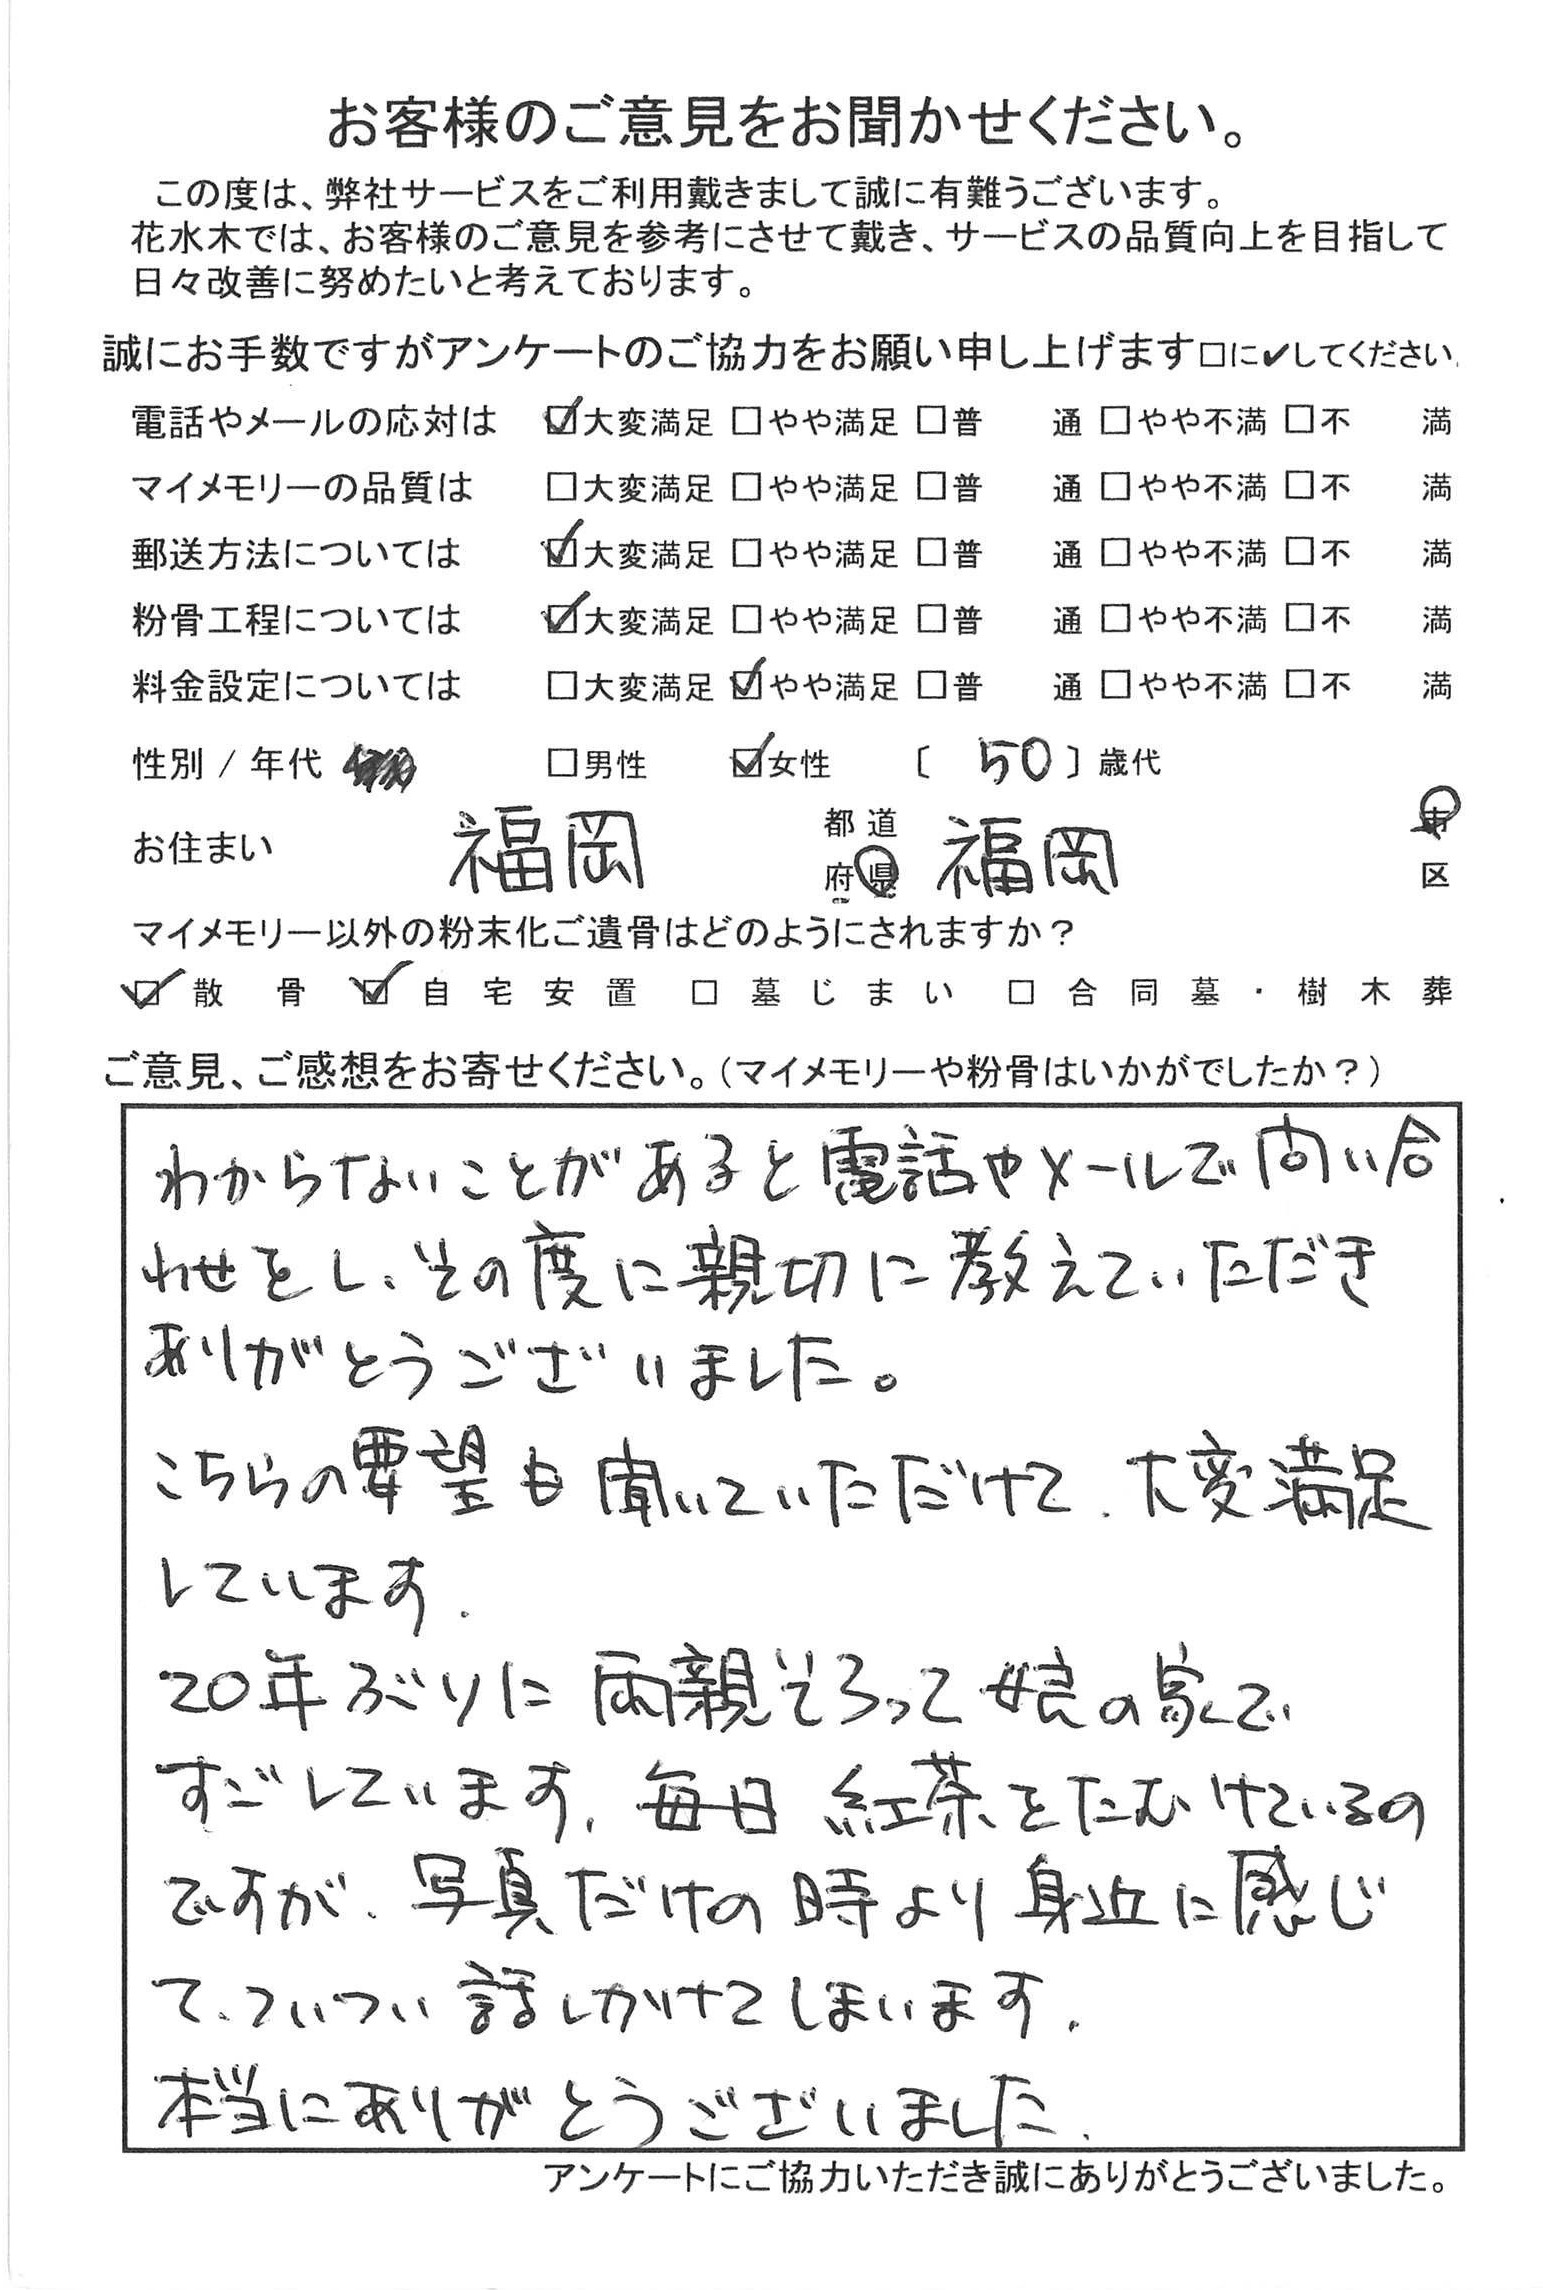 お客様のご意見をお聞かせください。
この度は、弊社サービスをご利用戴きまして誠に有難うございます。
花水木では、お客様のご意見を参考にさせて戴き、サービスの品質向上を目指して
日々改善に努めたいと考えております。
誠にお手数ですがアンケートのご協力をお願い申し上げます□に✔してください。
電話やメールの応対は ☑大変満足 □やや満足 □普 通 □やや不満 □不 満
マイメモリーの品質は □大変満足 □やや満足 □普 通 □やや不満 □不 満
郵送方法については ☑大変満足 □やや満足 □普 通 □やや不満 □不 満
粉骨工程については ☑大変満足 □やや満足 □普 通 □やや不満 □不 満
料金設定については □大変満足 ☑やや満足 □普 通 □やや不満 □不 満
性別 / 年代 □男性 ☑女性 〔 50 〕歳代
お住まい 福岡 都道府県 福岡 市区
マイメモリー以外の粉末化ご遺骨はどのようにされますか？
☑散骨 ☑自宅安置 □墓じまい □合同墓・樹木葬
ご意見、ご感想をお寄せください。（マイメモリーや粉骨はいかがでしたか？）
わからないことがあると電話やメールで問い合
わせをし、その度に親切に教えていただき
ありがとうございました。
こちらの要望も聞いていただけて、大変満足
しています。
20年ぶりに両親そろって娘の家で
すごしています。毎日紅茶をたむけているの
ですが、写真だけの時より身近に感じ
て、ついつい話しかけてしまいます。
本当にありがとうございました。
アンケートにご協力いただき誠にありがとうございました。